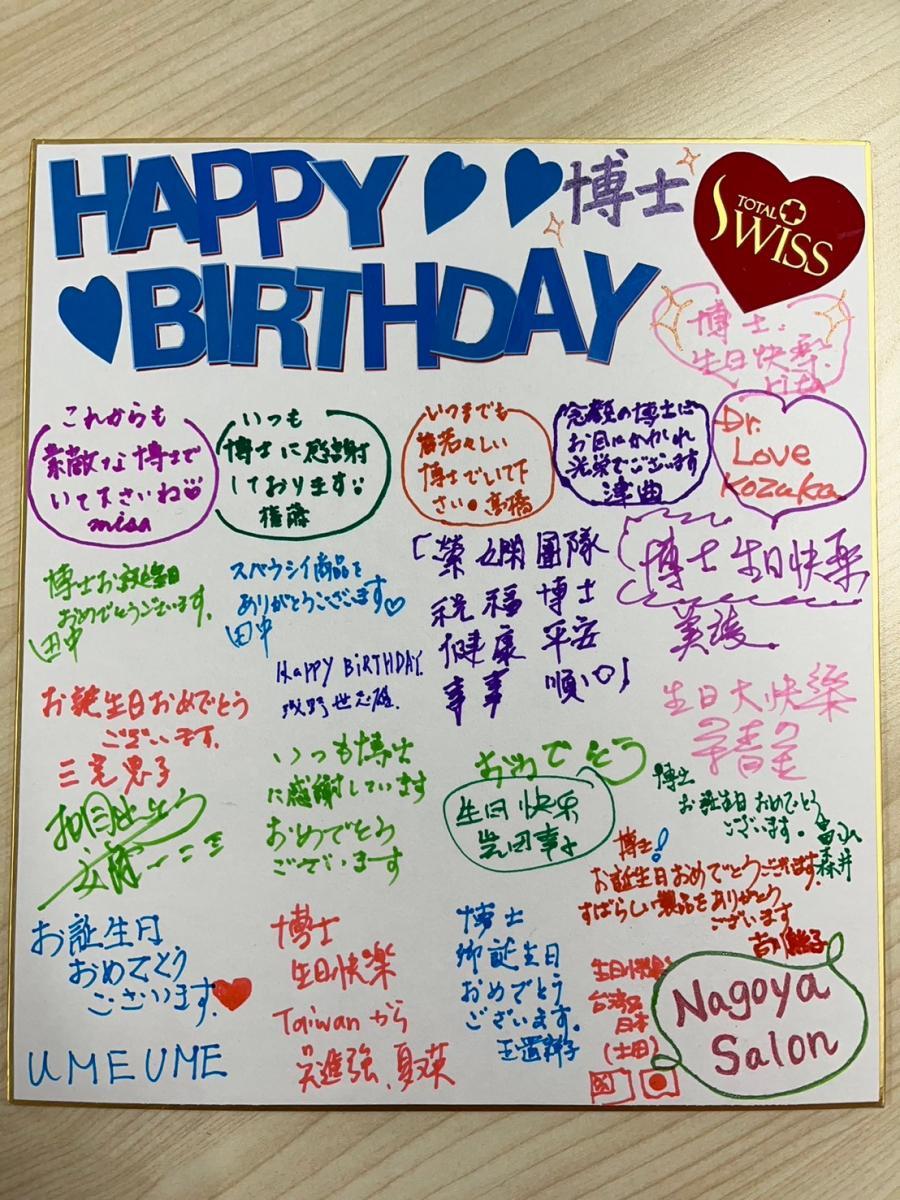 HAPPY
博士
BIRTHDAY
TOTAL
SWISS
博士.
生日快楽.
rita
これからも
素敵な博士で
いて下さいね
misa
いつも
博士に感謝
しております
いつまでも
若々しい
博士でいて下
さい 高橋
念願の博士に
お目にかかれ
光栄でございます
津曲
Dr.
Love
Kozuka
博士お誕生日
おめでとうございます.
田中
商品を
ありがとうございます
田中
團隊
祝福 博士
健康 平安
事事 順心
博士 生日快楽
HAPPY BIRTHDAY.
お誕生日おめでとう
ございます.
生日大快樂
いつも博士
に感謝しています
おめでとう
ございます
おめでとう
生日快乐
博士
お誕生日おめでとう
ございます.
森井
博士!
お誕生日おめでとうございます.
すばらしい製品をありがとう
ございます
お誕生日
おめでとう
ございます.
UME UME
博士
生日快樂
Taiwanから
博士
御誕生日
おめでとう
ございます.
台湾
日本
(土田)
Nagoya
Salon